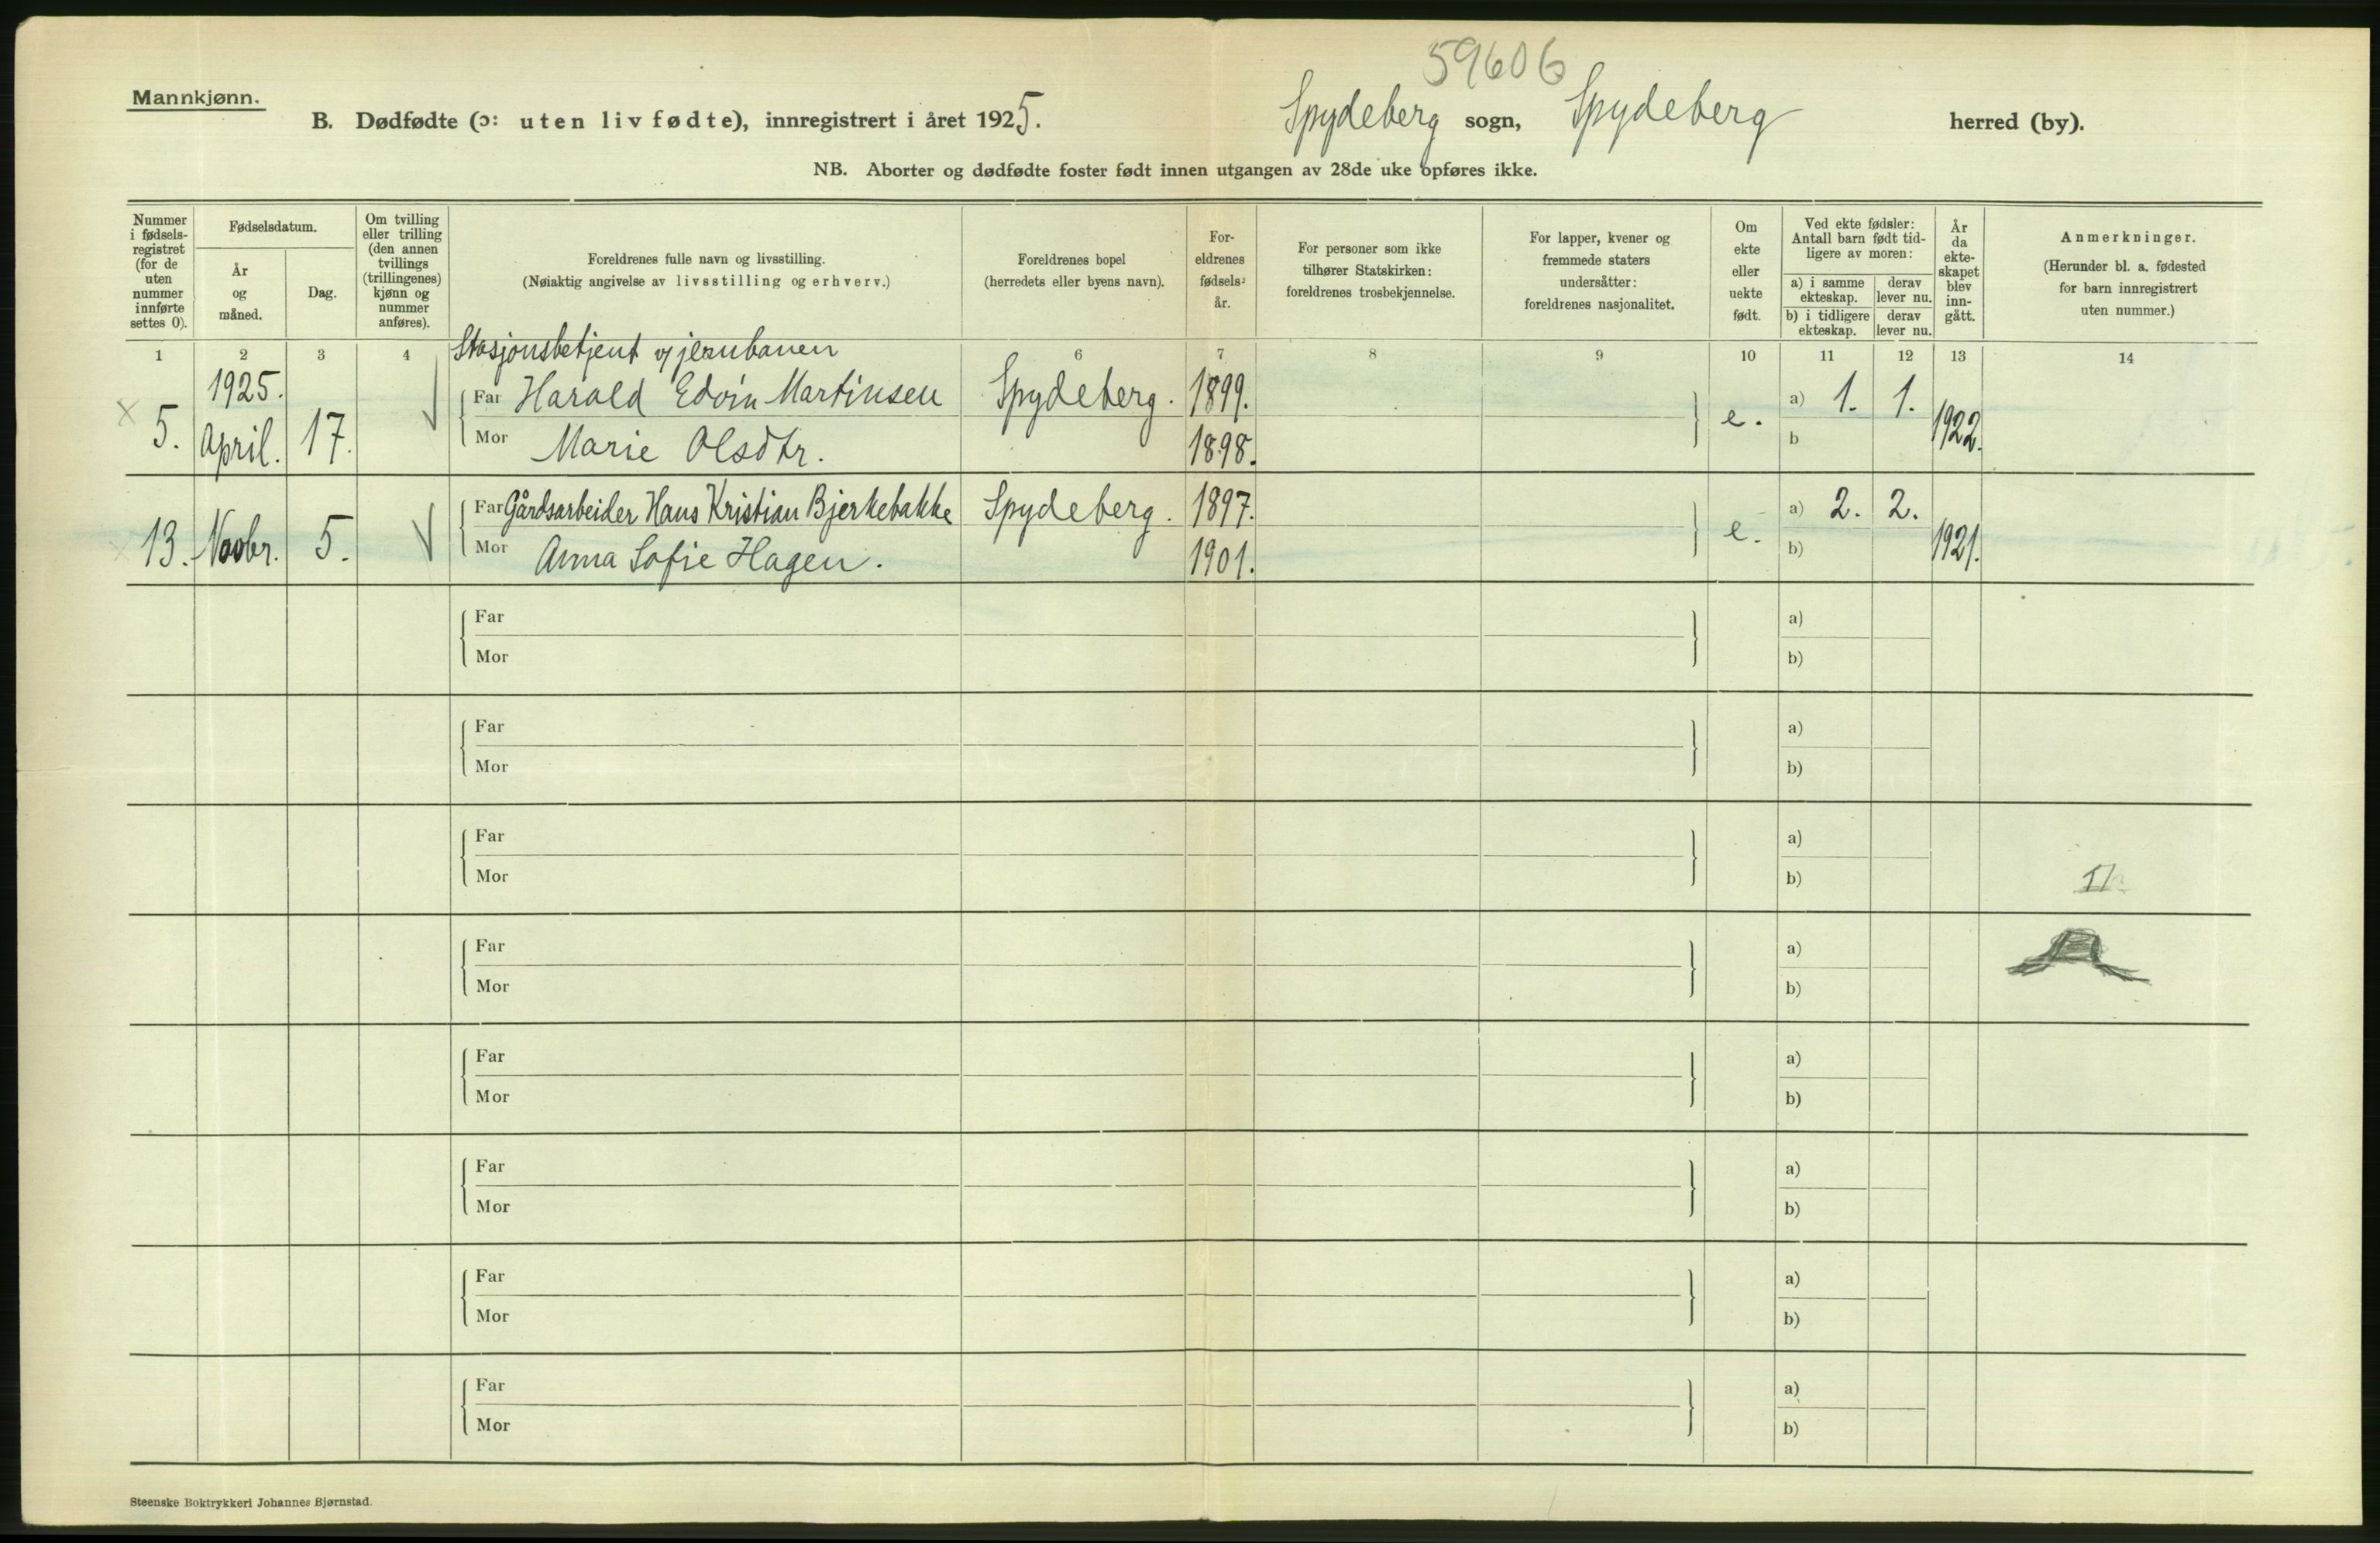 59606
Mannkjønn.
B. Dødfødte (ɔ: uten liv fødte), innregistrert i året 1925. Spydeberg sogn, Spydeberg herred (by).
NB. Aborter og dødfødte foster født innen utgangen av 28de uke opføres ikke.
Nummer i fødsels-registret (for de uten nummer innførte settes 0).
Fødselsdatum.
År og måned.
Dag.
Om tvilling eller trilling (den annen tvillings (trillingenes) kjønn og nummer anføres).
Foreldrenes fulle navn og livsstilling.
(Nøiaktig angivelse av livsstilling og erhverv.)
Foreldrenes bopel
(herredets eller byens navn).
For-eldrenes fødsels-år.
For personer som ikke tilhører Statskirken: foreldrenes trosbekjennelse.
For lapper, kvener og fremmede staters undersåtter: foreldrenes nasjonalitet.
Om ekte eller uekte født.
Ved ekte fødsler: Antall barn født tid-ligere av moren:
a) i samme ekteskap. derav lever nu.
b) i tidligere ekteskap. derav lever nu.
År da ekte-skapet blev inn-gått.
Anmerkninger.
(Herunder bl. a. fødested for barn innregistrert uten nummer.)
1 2 3 4 6 7 8 9 10 11 12 13 14
Stasjonsbetjent v/ jernbanen
1925.
× 5. April. 17. Far Harald Edvin Martinsen Spydeberg. 1899. e. a) 1. 1. 1922.
Mor Marie Olsdtr. 1898. b
13. Novbr. 5. Far Gårdsarbeider Hans Kristian Bjerkebakke Spydeberg. 1897. e. a) 2. 2. 1921.
Mor Anna Sofie Hagen. 1901. b)
Far a)
Mor b)
Far a)
Mor b)
Far a)
Mor b)
Far a)
Mor b)
Far a)
Mor b)
Far a)
Mor b)
Far a)
Mor b)
Far a)
Mor b)
Steenske Boktrykkeri Johannes Bjørnstad.